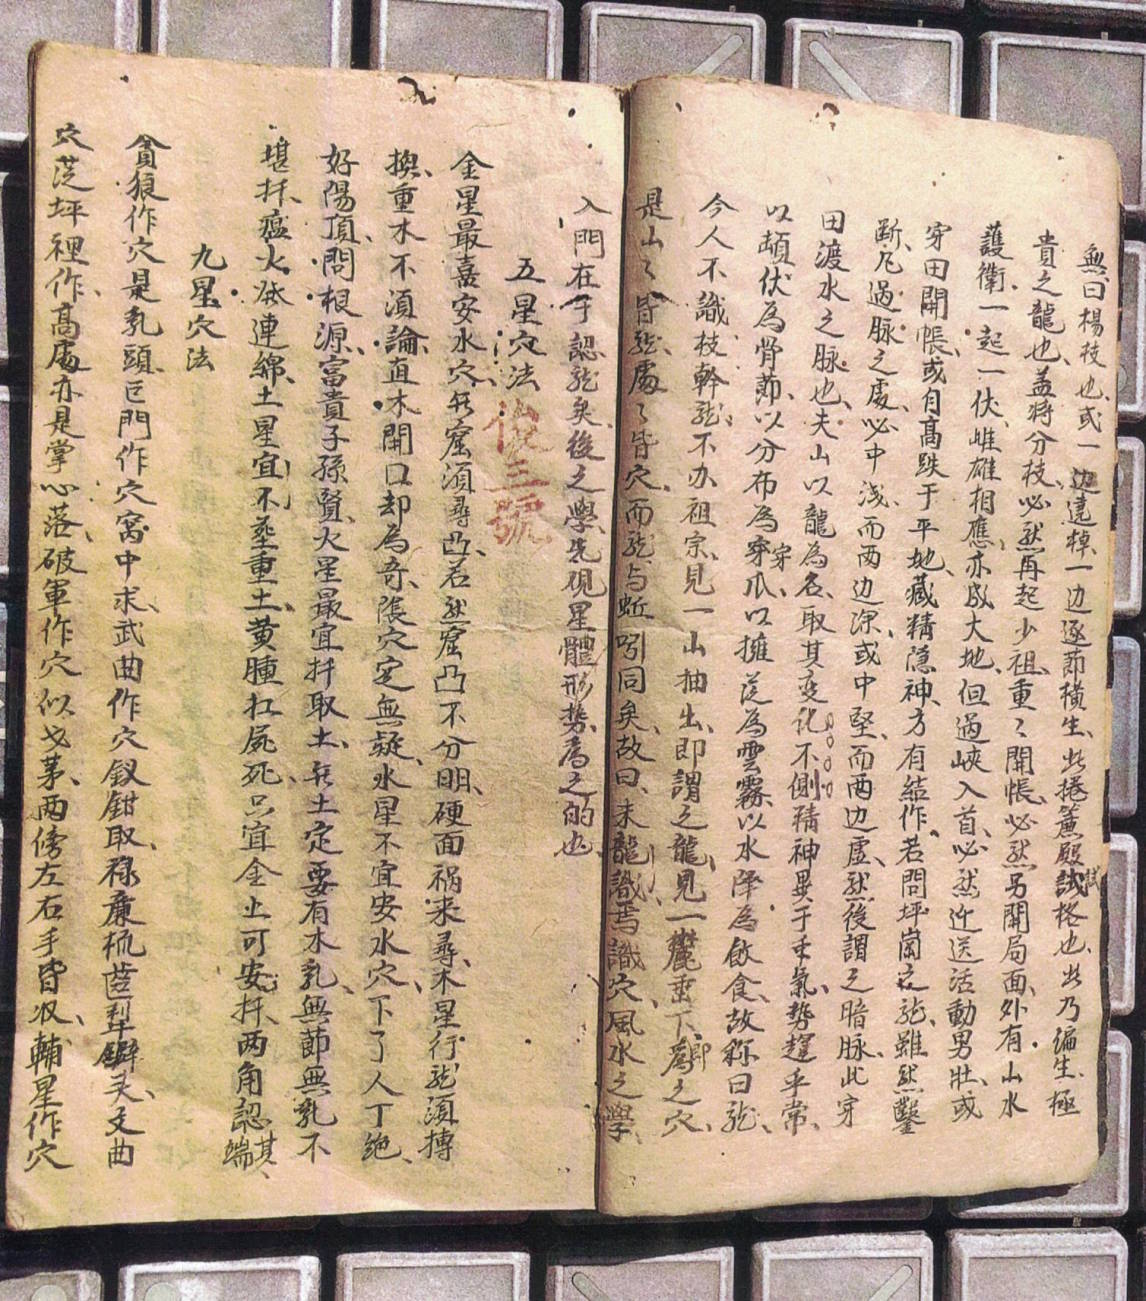 無曰楊枝也或一边遠棹一边逐節橫生此捲簾殿試格也此乃偏生極
貴之龍也盖將分枝必然再起少祖重〻開帳必然另開局面外有山水
護衛一起一伏雌雄相應亦成大地但過峽入首必然近送活動男壯或
穿田開帳或自高跌于平地藏精隐神方有結作若問坪崗之龍雖然鑿
断凢過脉之處必中浅而两边深或中堅而两边虚然後謂之暗脉此穿
田渡水之脉也夫山以龍為名取其变化不側精神異于禾氣勢趕乎常
以頓伏為骨節以分布為穿爪以擁从為雲霧以水降為飲食故称曰龍
今人不識枝幹龍不办祖宗見一山抽出即謂之龍見一麓垂下即為之穴
是山〻皆龍處〻皆穴而龍与蚯蚓同矣故曰未龍識焉識穴風水之學
入門在于認龍矣後之學先砚星體形势為之的也
五星穴法
俊三號
金星最嘉安水穴無窟須尋凸若然窟凸不分明硬面禍来尋木星行龍須摶
換重木不須論直木開口却為奇脹穴定無疑水星不宜安水穴下了人丁絶
好陽頂問根源富貴子孫賢火星最宜扦取土無土定要有木乳無節無乳不
堪扦瘟火発連綿土星宜不葬重土黄腫扛屍死只宜金土可安扦两角認其端
九星穴法
貪狼作穴是乳頭巨門作穴窝中求武曲作穴釵鉗取禄廉梳齒犁鐴头文曲
穴從坪裡作高處亦是掌心落破軍作穴似戈茅两傍左右手皆収輔星作穴